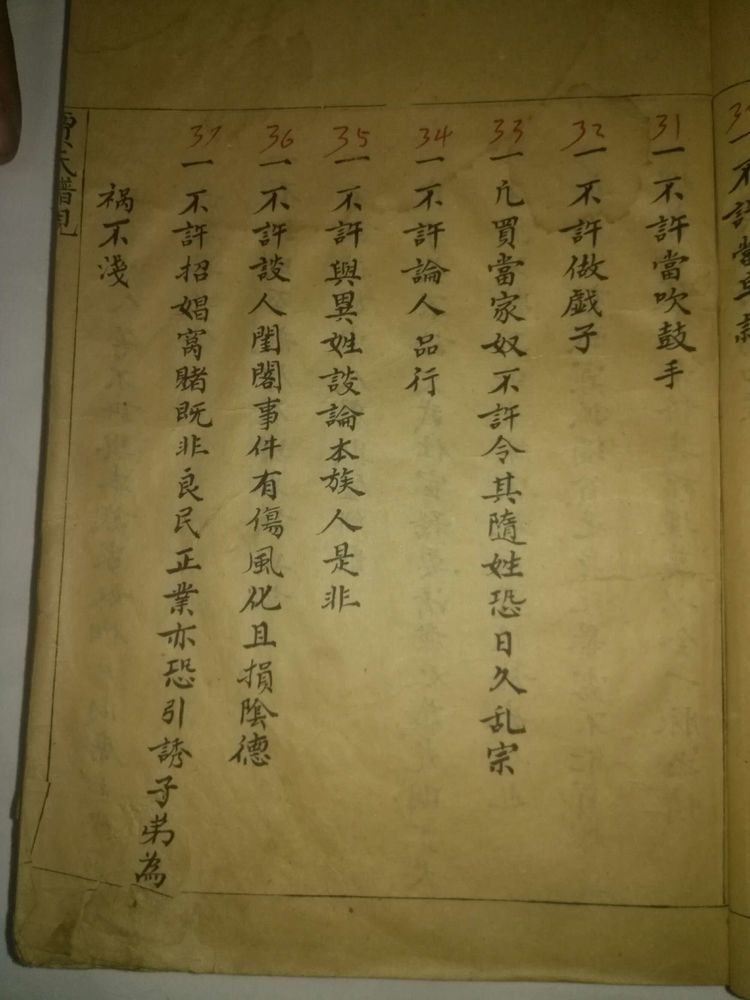 31
一不許當吹鼓手
32
一不許做戯子
33
一凢買當家奴不許令其隨姓恐日久乱宗
34
一不許論人品行
35
一不許與異姓談論本族人是非
36
一不許談人閨閣事件有傷風化且損陰德
37
一不許招娼窩賭既非良民正業亦恐引誘子弟為
禍不淺